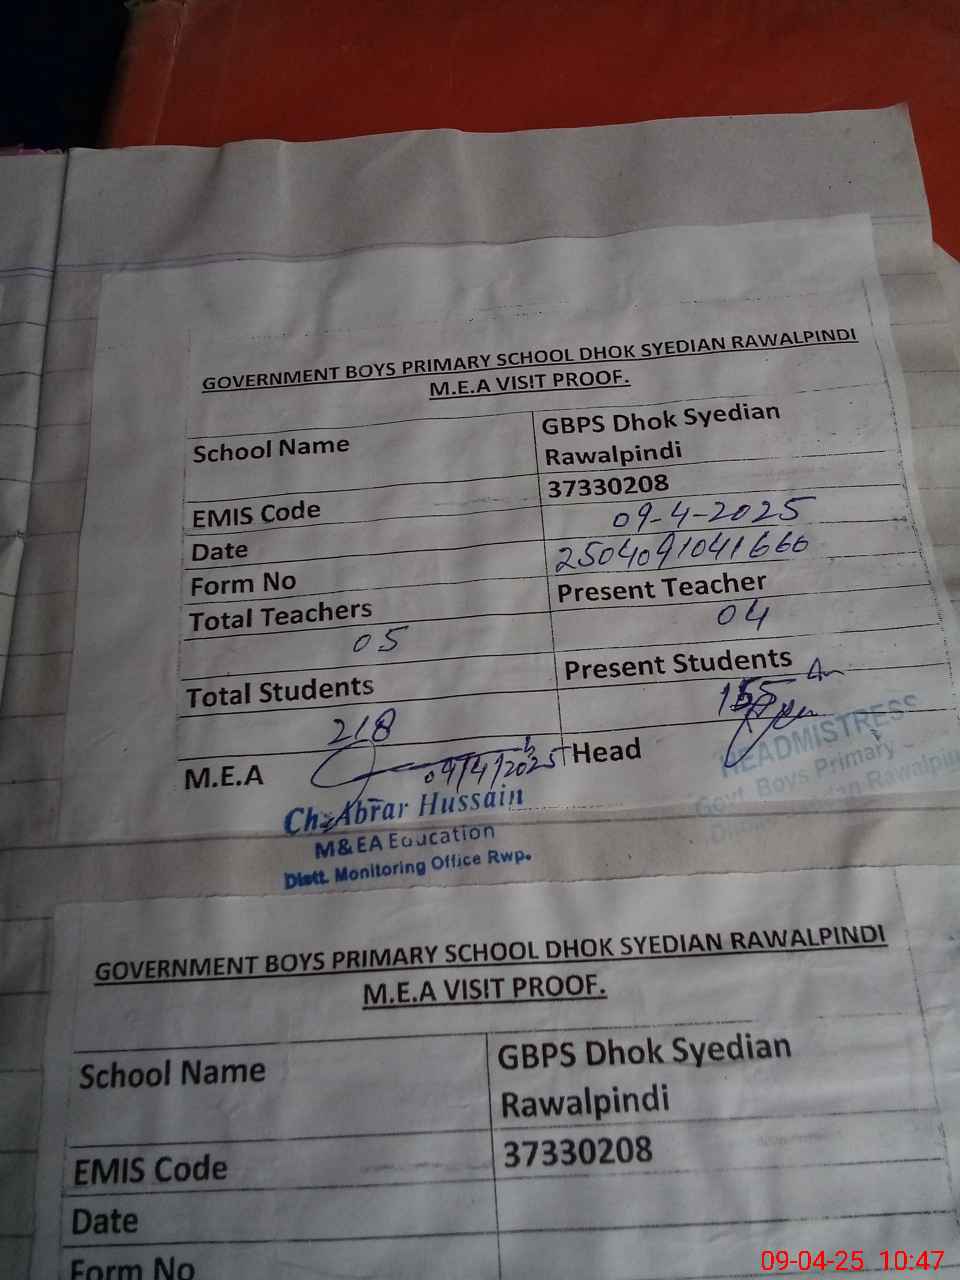 GOVERNMENT BOYS PRIMARY SCHOOL DHOK SYEDIAN RAWALPINDI
M.E.A VISIT PROOF.
School Name GBPS Dhok Syedian
Rawalpindi
EMIS Code 37330208
Date 09-4-2025
Form No 2504091041666
Total Teachers Present Teacher
05 04
Total Students Present Students
218 155
M.E.A 09/4/2025 Head
Ch. Abrar Hussain
M&EA Education
Distt. Monitoring Office Rwp.
HEADMISTRESS
Govt. Boys Primary
Rawalpindi
GOVERNMENT BOYS PRIMARY SCHOOL DHOK SYEDIAN RAWALPINDI
M.E.A VISIT PROOF.
School Name GBPS Dhok Syedian
Rawalpindi
EMIS Code 37330208
Date
Form No
09-04-25 10:47